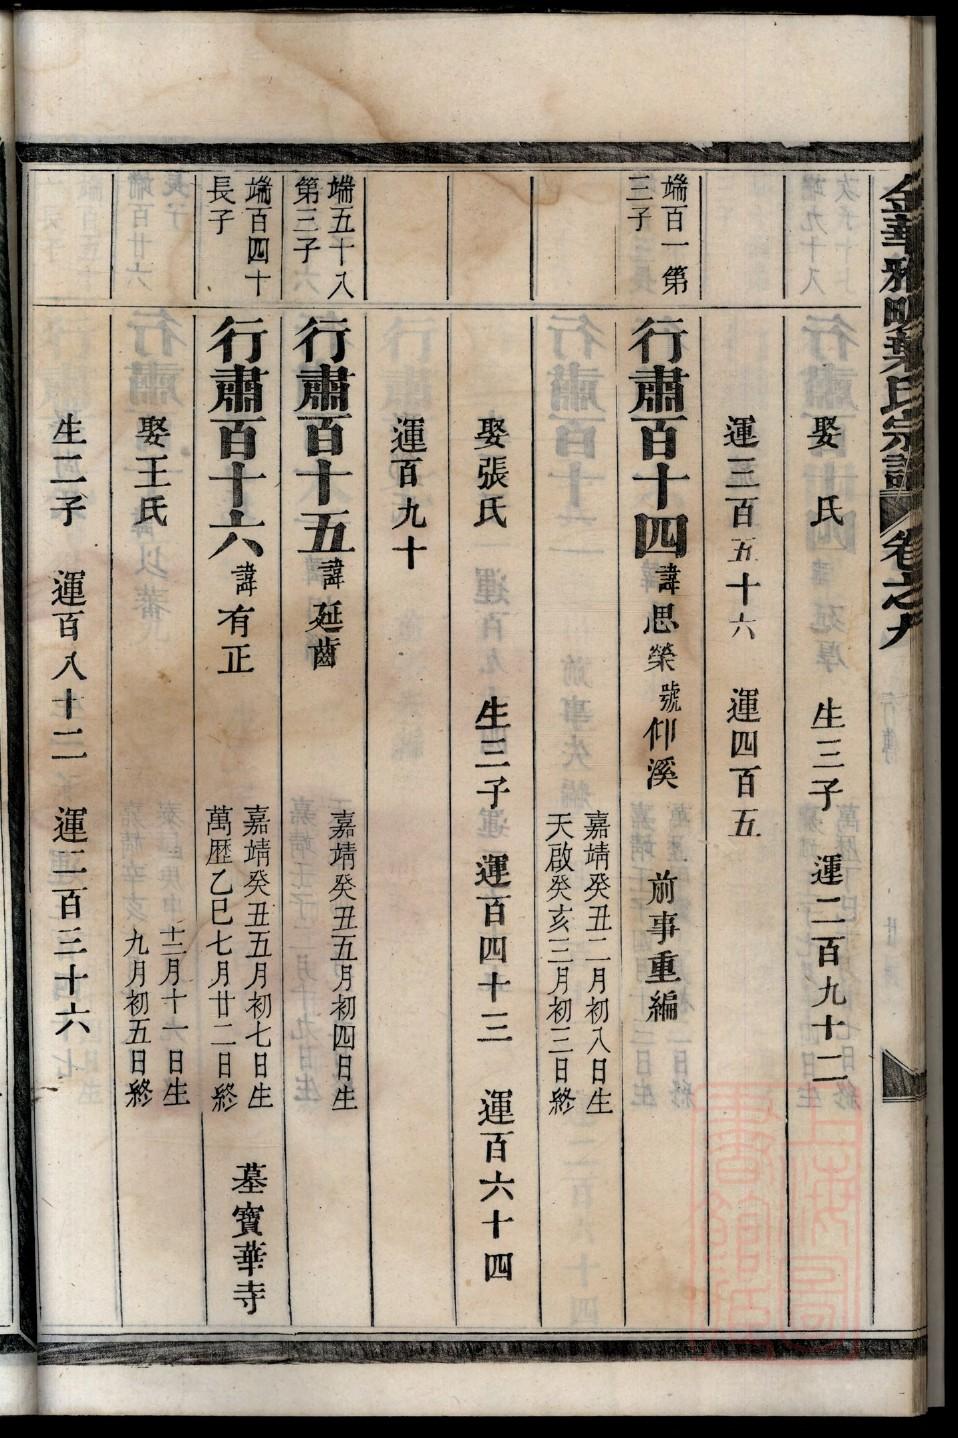 金華雅畈葉氏宗譜 卷之九
娶 氏 生三子 運二百九十二
運三百五十六 運四百五
端百一第三子
行肅百十四 諱思榮 號仰溪 前事重編
嘉靖癸丑二月初八日生
天啟癸亥三月初三日終
娶張氏 生三子 運百四十三 運百六十四
運百九十
端五十八第三子
行肅百十五 諱延齒 嘉靖癸丑五月初四日生
端百四十長子
行肅百十六 諱有正 嘉靖癸丑五月初七日生
萬歷乙巳七月廿二日終 墓寶華寺
娶王氏 十二月十一日生
九月初五日終
生二子 運百八十二 運二百三十六